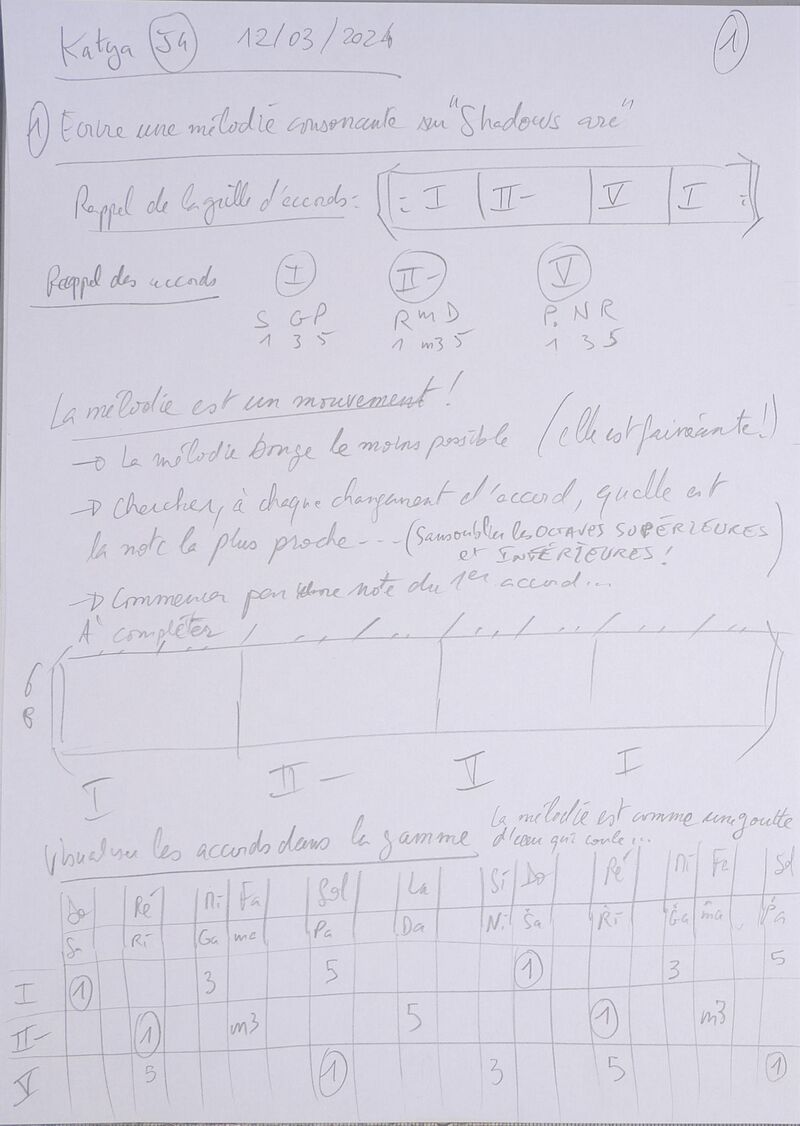 Katya 54 12/03/2024 1
1 Ecrire une mélodie consonante sur "Shadows are"
Rappel de la grille d'accords: : I | II- | V | I :
Rappel des accords I II- V
S G P R m D P N R
1 3 5 1 m3 5 1 3 5
La mélodie est un mouvement !
→ La mélodie bouge le moins possible (elle est fainéante !)
→ Chercher, à chaque changement d'accord, quelle est
la note la plus proche --- (Sans oublier les OCTAVES SUPÉRIEURES
et INFÉRIEURES !)
→ Commencer par une note du 1er accord...
A compléter
6
8
I II- V I
La mélodie est comme une goutte
d'eau qui coule...
Visualiser les accords dans la gamme
Do Ré Mi Fa Sol La Si Do Ré Mi Fa Sol
Sa Ri Ga ma Pa Da Ni Sa Ri Ga ma Pa
I 1 3 5 1 3 5
II- 1 m3 5 1 m3
V 5 1 3 5 1